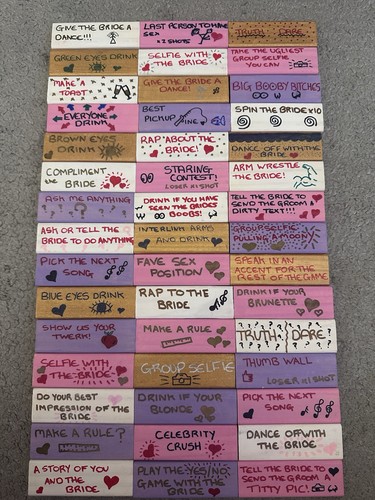 GIVE THE BRIDE A
DANCE!!!
LAST PERSON TO HAVE
SEX = 2 SHOTS
TRUTH DARE
GREEN EYES DRINK
SELFIE WITH
THE BRIDE
TAKE THE UGLIEST
GROUP SELFIE
YOU CAN
MAKE A
TOAST
GIVE THE BRIDE A
DANCE!
BIG BOOBY BITCHES
EVERYONE
DRINK
BEST
PICKUP LINE
SPIN THE BRIDE x10
BROWN EYES
DRINK
RAP ABOUT THE
BRIDE!
DANCE OFF WITH THE
BRIDE
COMPLIMENT
THE BRIDE
STARING
CONTEST!
LOSER x1 SHOT
ARM WRESTLE
THE BRIDE!
ASK ME ANYTHING
DRINK IF YOU HAVE
SEEN THE BRIDES
BOOBS!
TELL THE BRIDE TO
SEND THE GROOM A
DIRTY TEXT!!!
ASK OR TELL THE
BRIDE TO DO ANYTHING
INTERLINK ARMS
AND DRINK
GROUP SELFIE
PULLING A MOON
PICK THE NEXT
SONG
FAVE SEX
POSITION
SPEAK IN AN
ACCENT FOR THE
REST OF THE GAME
BLUE EYES DRINK
RAP TO THE
BRIDE
DRINK IF YOUR
BRUNETTE
SHOW US YOUR
TWERK!
MAKE A RULE
TRUTH DARE
SELFIE WITH
THE BRIDE
GROUP SELFIE
THUMB WALL
LOSER x1 SHOT
DO YOUR BEST
IMPRESSION OF THE
BRIDE
DRINK IF YOUR
BLONDE
PICK THE NEXT
SONG
MAKE A RULE?
CELEBRITY
CRUSH
DANCE OFF WITH
THE BRIDE
A STORY OF YOU
AND THE
BRIDE
PLAY THE YES/NO
GAME WITH THE
BRIDE
TELL THE BRIDE TO
SEND THE GROOM A
TITTY PIC!